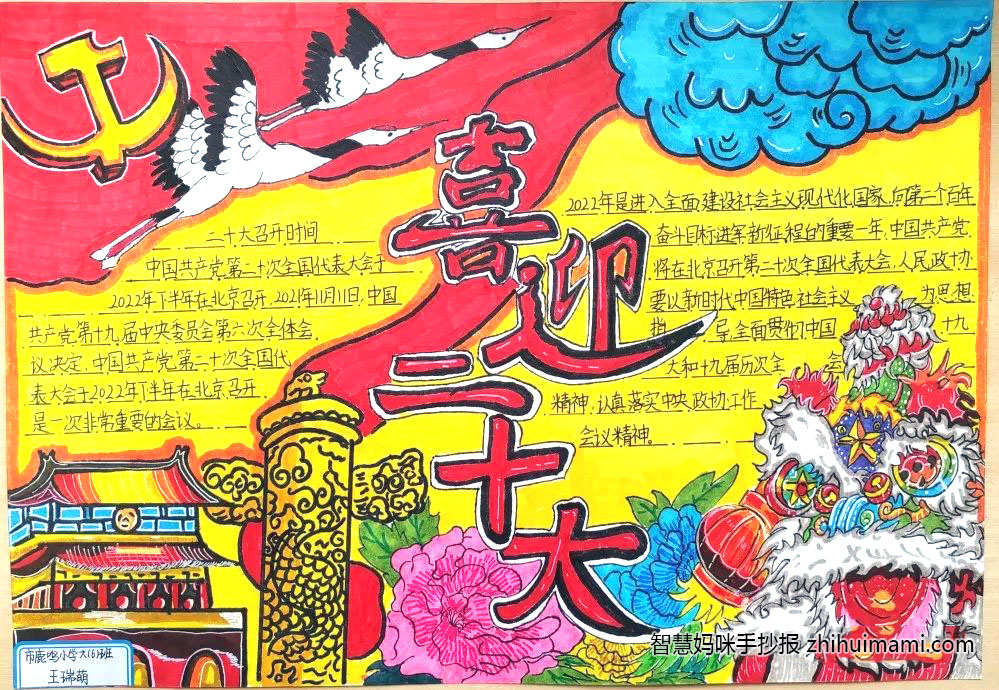 喜迎二十大
二十大召开时间
中国共产党第二十次全国代表大会于
2022年下半年在北京召开,2021年11月11日,中国
共产党第十九届中央委员会第六次全体会
议决定,中国共产党第二十次全国代
表大会于2022年下半年在北京召开.
是一次非常重要的会议。
2022年是进入全面建设社会主义现代化国家,向第二个百年
奋斗目标进军新征程的重要一年,中国共产党.
将在北京召开第二十次全国代表大会,人民政协
要以新时代中国特色社会主义 为思想
指 导,全面贯彻中国 十九
大和十九届历次全 会
精神,认真落实中央政协工作
会议精神。
市鹿鸣小学六(6)班
王瑞萌
智慧妈咪手抄报 zhihuimami.com